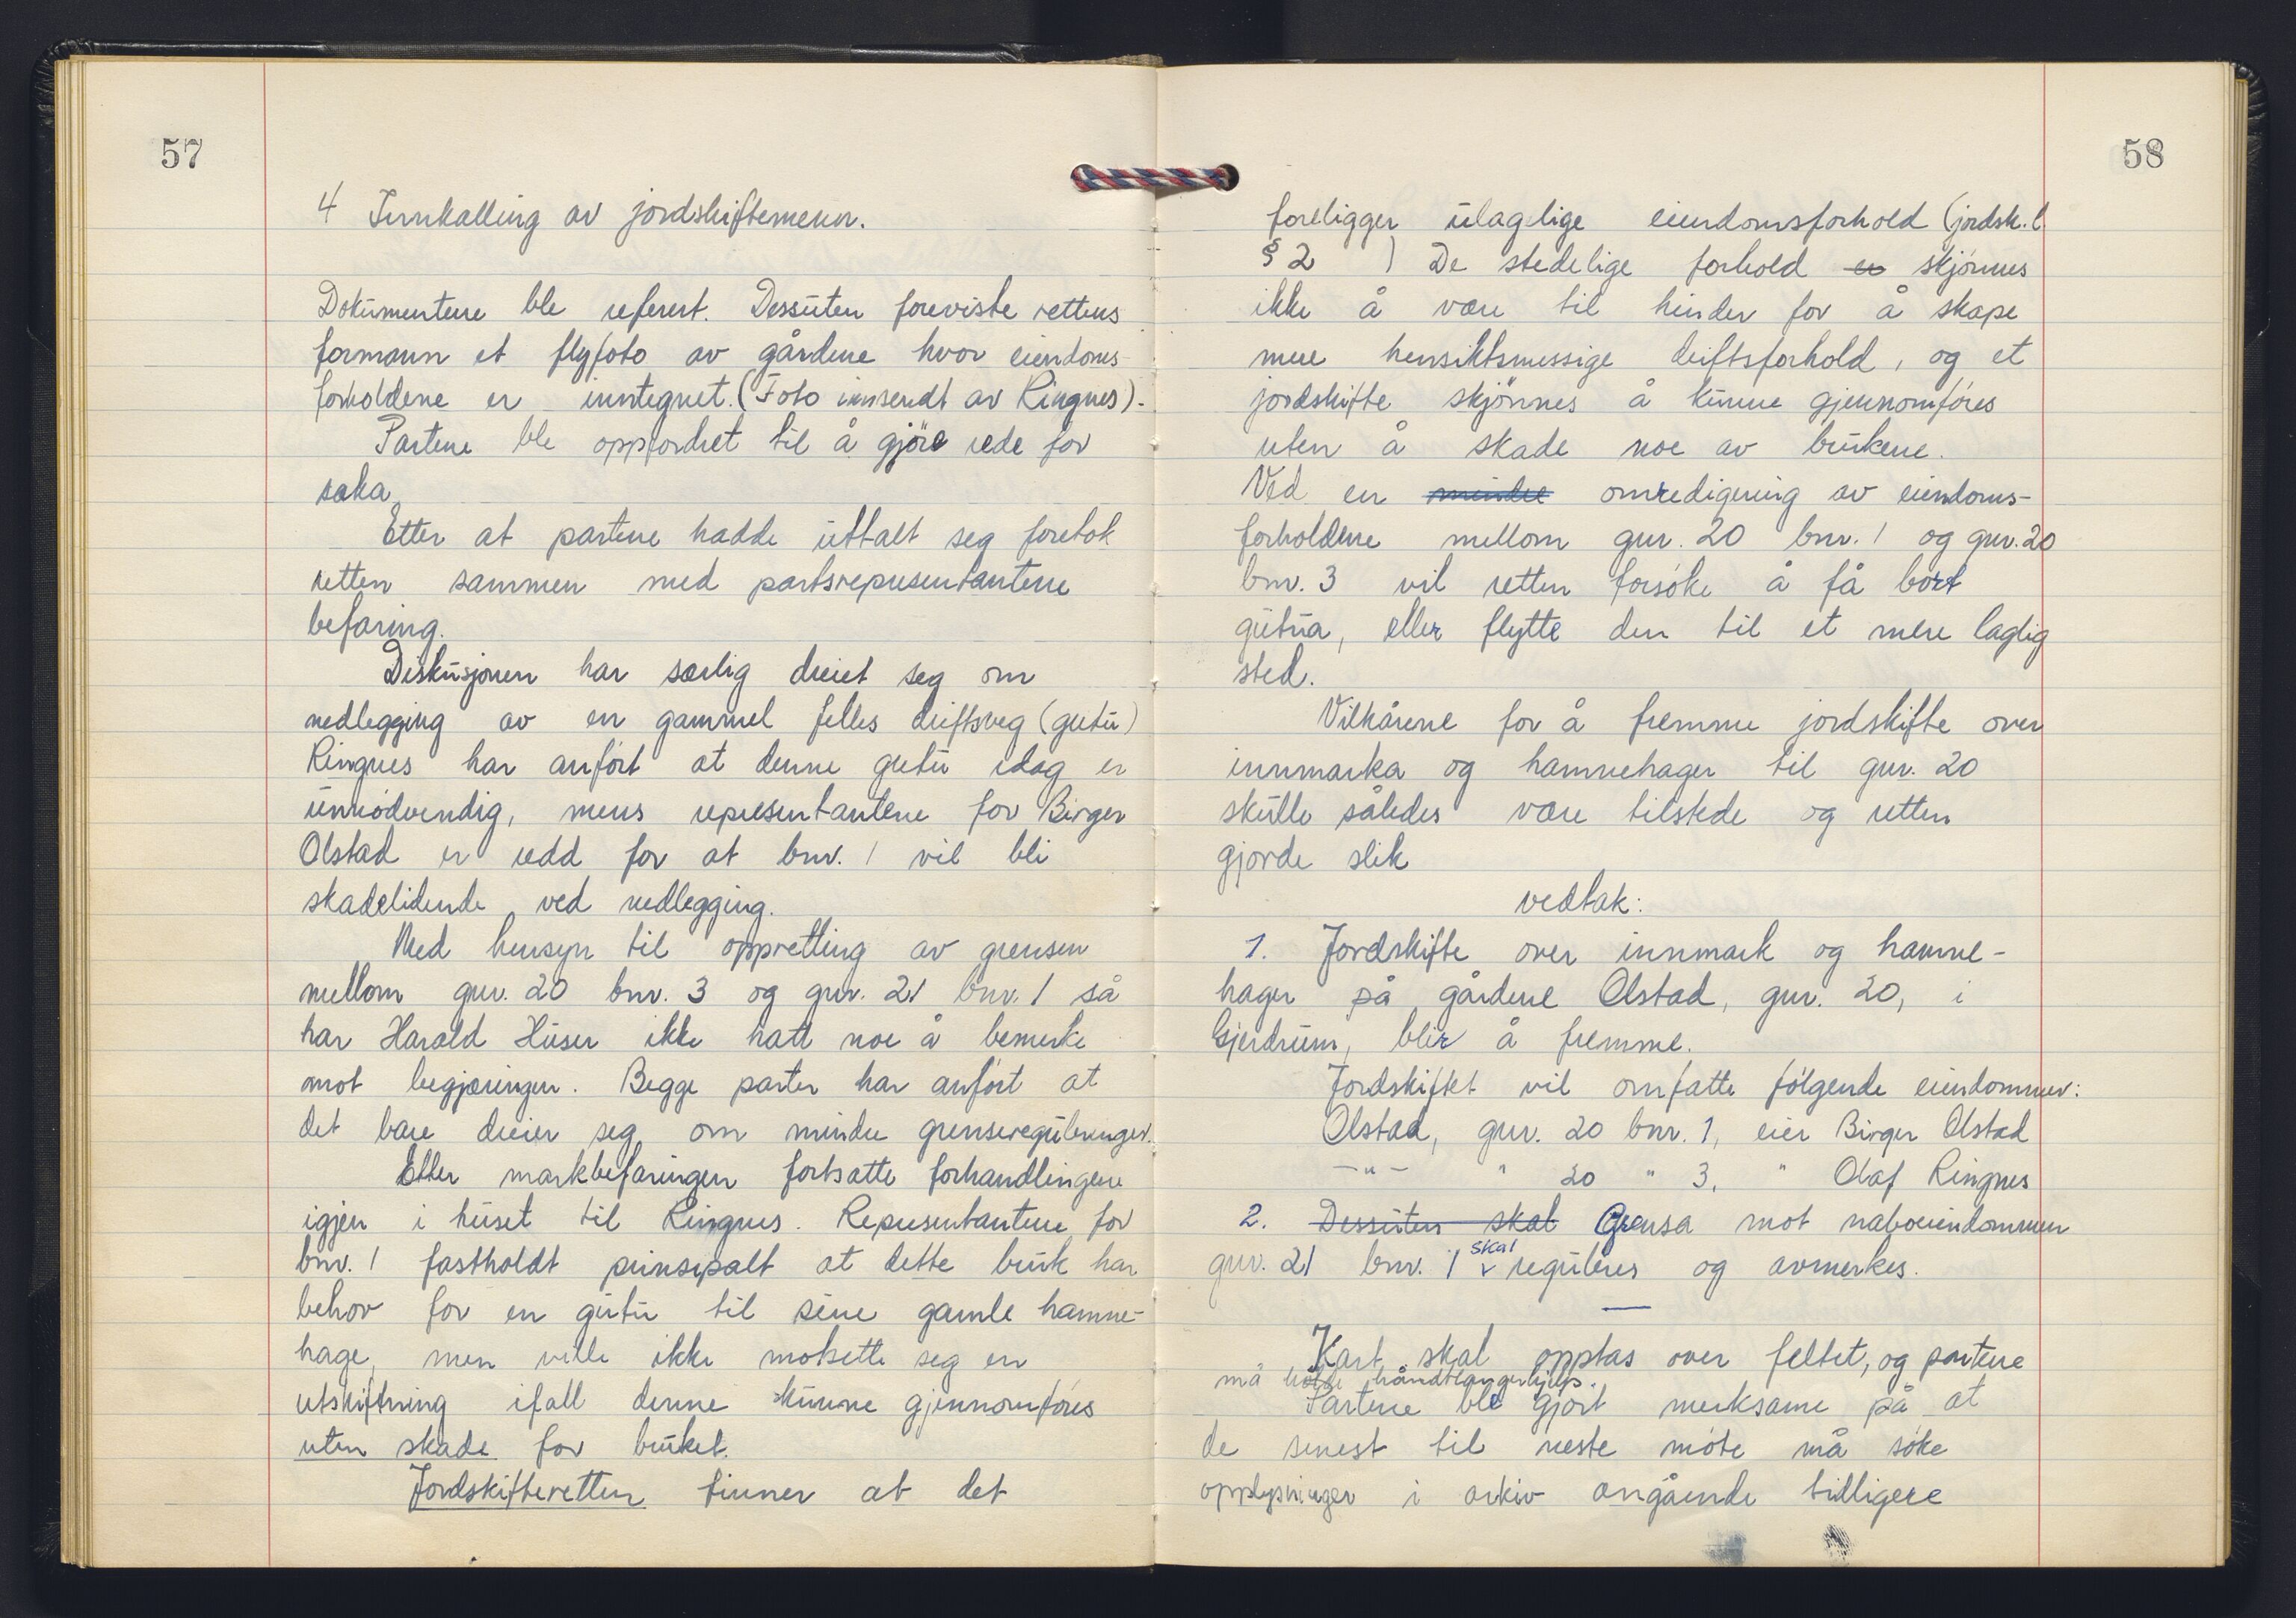 57
4 Innkalling av jordskiftemenn.
Dokumentene ble referert. Dessuten foreviste rettens
formann et flyfoto av gårdene hvor eiendoms-
forholdene er inntegnet. (Foto innsendt av Ringnes).
Partene ble oppfordret til å gjöre rede for
saka.
Etter at partene hadde uttalt seg foretok
retten sammen med partsrepresentantene
befaring.
Diskusjonen har særlig dreiet seg om
nedlegging av en gammel felles driftsveg (gutu)
Ringnes har anfört at denne gutu idag er
unnödvendig, mens representantene for Birger
Olstad er redd for at bnr. 1 vil bli
skadelidende ved nedlegging.
Med hensyn til oppretting av grensen
mellom gnr. 20 bnr. 3 og gnr. 21 bnr. 1 så
har Harald Huser ikke hatt noe å bemerke
mot begjæringen. Begge parter har anfört at
det bare dreier seg om mindre grensereguleringer.
Etter markbefaringen fortsatte forhandlingene
igjen i huset til Ringnes. Representantene for
bnr. 1 fastholdt prinsipalt at dette bruk har
behov for en gutu til sine gamle hamne-
hage, men ville ikke motsette seg en
utskiftning ifall denne kunne gjennomföres
uten skade for bruket.
Jordskifteretten finner at det
58
foreligger ulagelige eiendomsforhold (jordsk.l
§ 2 ) De stedelige forhold er skjönnes
ikke å være til hinder for å skape
mere hensiktsmessige driftsforhold, og et
jordskifte skjönnes å kunne gjennomföres
uten å skade noe av brukene.
Ved en mindre omredigering av eiendoms-
forholdene mellom gnr. 20 bnr. 1 og gnr. 20
bnr. 3 vil retten forsöke å få bort
gutua, eller flytte den til et mere laglig
sted.
Vilkårene for å fremme jordskifte over
innmarka og hamnehager til gnr. 20
skulle således være tilstede og retten
gjorde slik
vedtak:
1. Jordskifte over innmark og hamne-
hager på gårdene Olstad, gnr. 20, i
Gjerdrum, blir å fremme.
Jordskiftet vil omfatte fölgende eiendommer:
Olstad, gnr. 20 bnr. 1, eier Birger Olstad
-"- " 20 " 3, " Olaf Ringnes
2. Dessuten skal Grensa mot naboeiendommen
gnr. 21 bnr. 1 skal reguleres og avmerkes.
Kart skal opptas over feltet, og partene
må holde håndtlangerhjelp.
Partene ble gjort merksame på at
de senest til neste möte må söke
opplysninger i arkiv angående tidligere